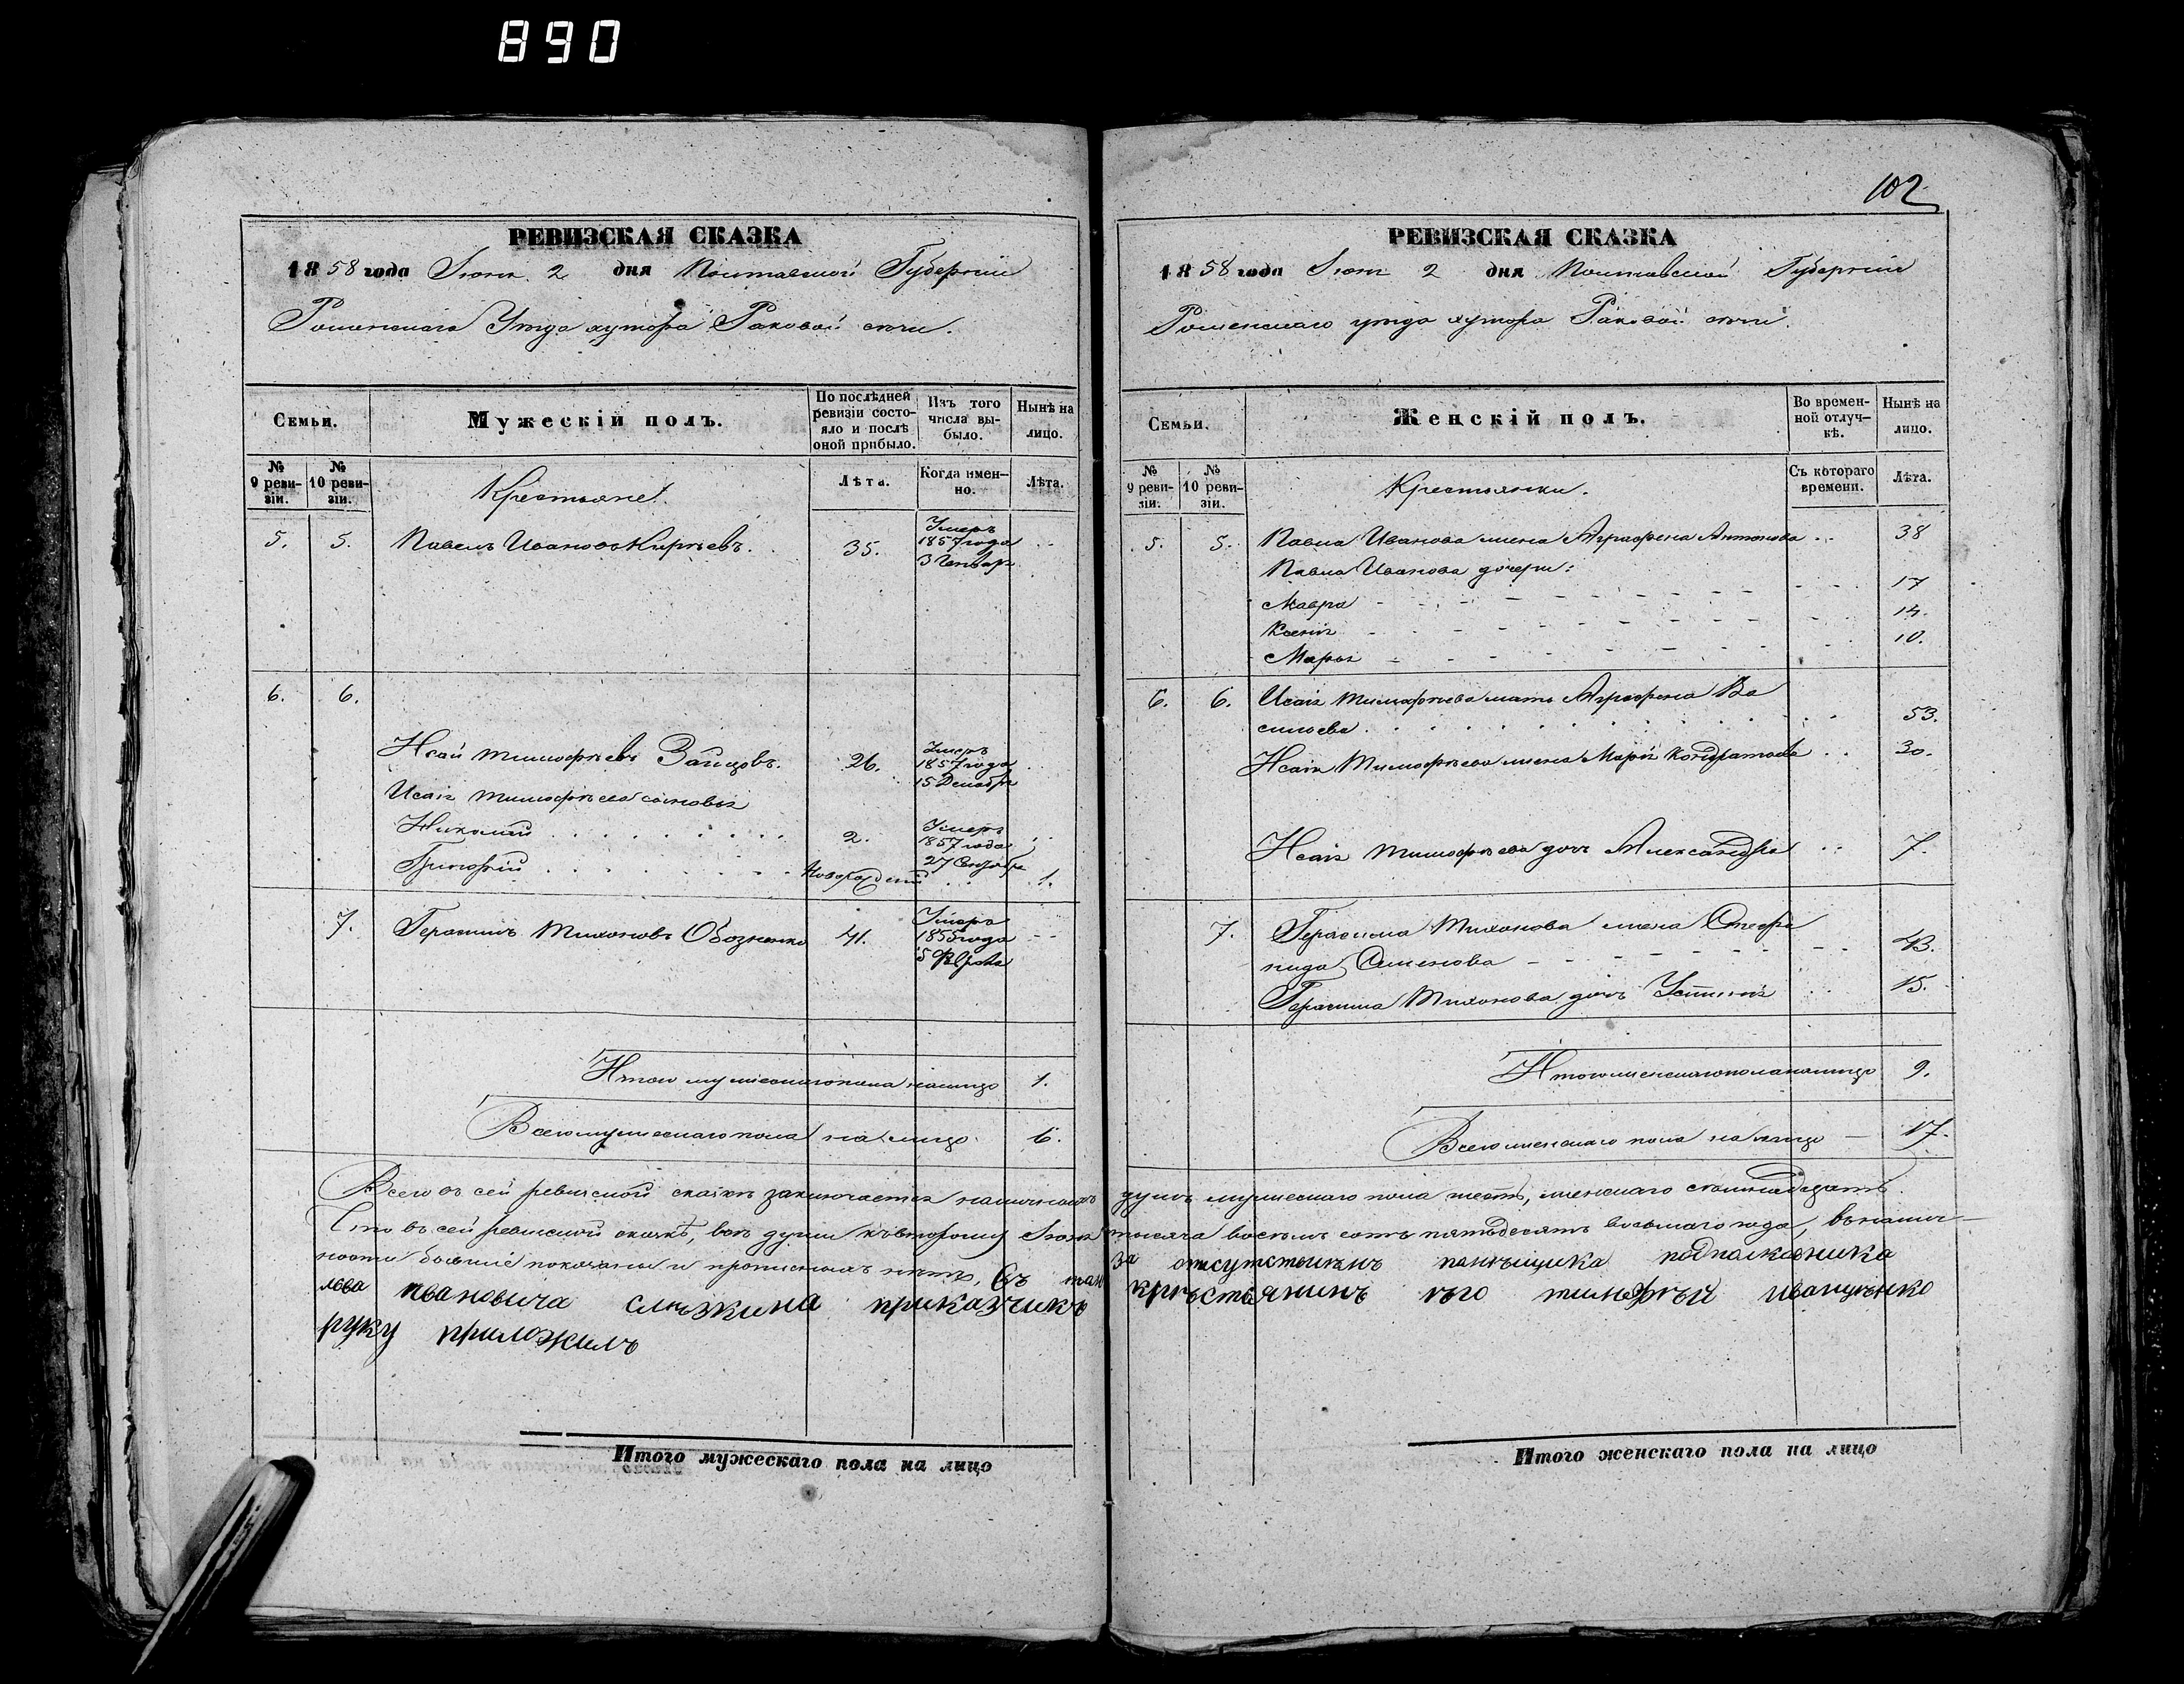 890
102
РЕВИЗСКАЯ СКАЗКА
1858 года Іюня 2 дня Полтавской Губерніи
Роменскаго Уезда хутора Раковой сечи.
Семьи.
Мужескій полъ.
По послѣдней ревизіи состо-
яло и послѣ
оной прибыло.
Изъ того
числа вы-
было.
Нынѣ на
лицо.
№
9 реви-
зіи.
№
10 реви-
зіи.
Крестьяне.
Лѣта.
Когда имен-
но.
Лѣта.
5. 5. Павелъ Ивановъ Киріевъ. 35. Умеръ
1857 года
3 Генваря
6. 6.
Исай Тимофѣевъ Зайцовъ. 26. Умеръ
1857 года
15 Декабря
Исаія Тимофѣева сыновья
Николай 2. Умеръ
1857 года
27 Октября
Григорій Новорожденный 1.
7. Герасимъ Тихоновъ Обозненко 41. Умеръ
1855 года
5 Февраля
Итого мужескаго пола налицо 1.
Всего мужескаго пола на лицо. 6.
Итого мужескаго пола на лицо
РЕВИЗСКАЯ СКАЗКА
1858 года Іюня 2 дня Полтавской Губерніи
Роменскаго уезда хутора Раковой сечи.
Семьи.
Женскій полъ.
Во времен-
ной отлуч-
кѣ.
Нынѣ на
лицо.
№
9 реви-
зіи.
№
10 реви-
зіи.
Крестьянки.
Съ котораго
времени.
Лѣта.
5. 5. Павла Иванова жена Аграфена Антонова 38
Павла Иванова дочери:
Мавра 17
Ксенія 14.
Марья 10.
6. 6. Исаія Тимофѣева мать Аграфена Ва
сильева 53.
Исаія Тимофѣева жена Марія Кондратова 30.
Исаія Тимофѣева дочь Александра 7.
7. Герасима Тихонова жена Стефа
нида Семенова 43.
Герасима Тихонова дочь Устинія 15.
Итого женскаго пола налицо 9.
Всего женскаго пола на лицо 17.
Всего въ сей ревизской сказкѣ заключается наличныхъ душъ мужескаго пола шесть, женскаго семьнадцать.
Что въ сей ревизской сказкѣ, все души къ второму Іюня тысяча восемь сотъ пятьдесятъ восьмаго года, въ налич-
ности бывшіе показаны и прописныхъ нетъ, въ том за отсутствіемъ помещика подполковника
лва ивановича слезкина приказчикъ крестьянинъ его тимофей иващенко
руку приложилъ
Итого женскаго пола на лицо